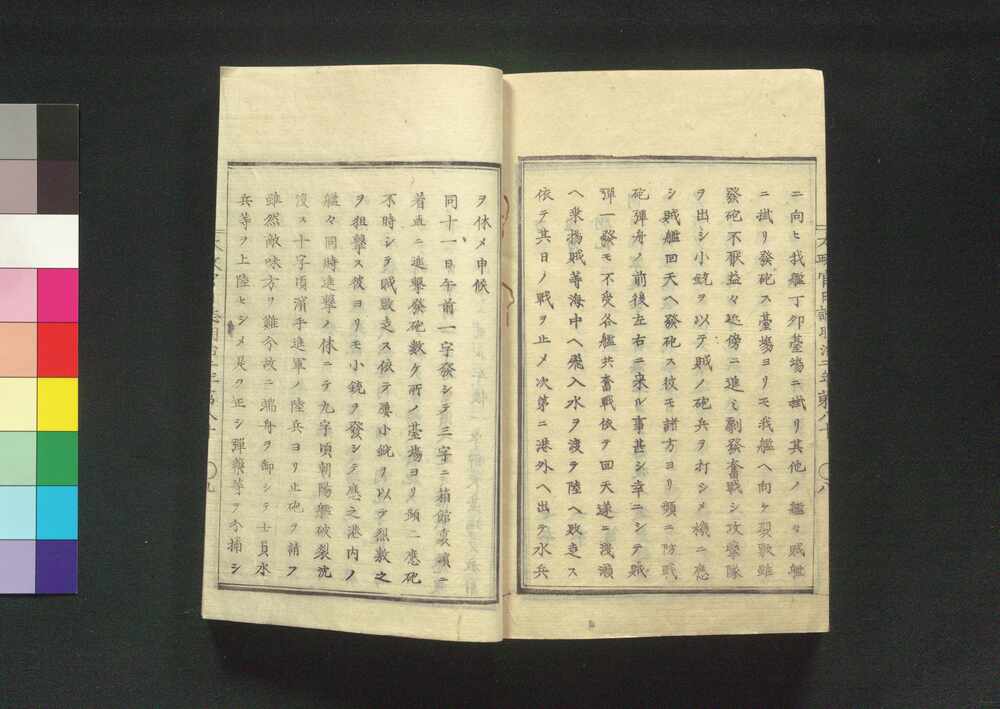 ニ向ヒ我艦丁卯臺場ニ掛リ其他ノ艦々賊艦
ニ掛リ發砲ス臺場ヨリモ我艦ヘ向ケ裂彈雖
發砲不厭益々近傍ニ進ミ劇發奮戰シ攻撃隊
ヲ出シ小銃ヲ以テ賊ノ砲兵ヲ打シメ機ニ應
シ賊艦回天ヘ發砲ス彼モ諸方ヨリ頻ニ防戰
砲彈舟ノ前後左右ニ来ル事甚シ幸ニシテ賊
彈一發モ不受各艦共奮戰依テ回天遂ニ淺瀬
ヘ乗揚賊等海中ヘ飛入水ヲ渡テ陸ヘ敗走ス
依テ其日ノ戰ヲ止メ次第ニ港外ヘ出テ水兵
太政官日誌明治二年第八十
〇八
ヲ休メ申候
同十一日午前一字發シテ三字ニ箱館裏礒ニ
着直ニ進撃發砲數ケ所ノ臺場ヨリ頻ニ應砲
不時シテ賊敗走ス依テ要小銃ヲ以テ烈敷之
ヲ狙撃ス彼ヨリモ小銃ヲ發シテ應之港内ノ
艦々同時進撃ノ休ニテ九字頃朝陽艦破裂沈
没ス十字頃濱手進軍ノ陸兵ヨリ止砲ヲ請フ
雖然敵味方ヲ難分故ニ端舟ヲ卸シテ士官水
兵等ヲ上陸セシメ是ヲ正シ彈藥等ヲ分捕シ
〇九